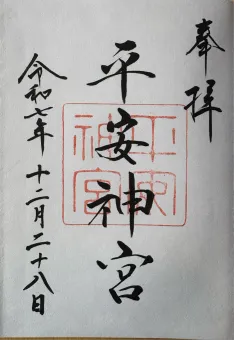 奉拝
平安神宮
令和七年 十二月二十八日